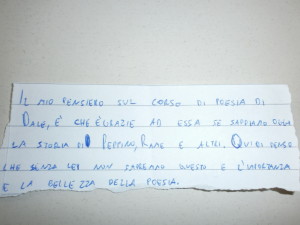 IL MIO PENSIERO SUL CORSO DI POESIA DI
DALE, È CHE È GRAZIE AD ESSA SE SAPPIAMO OGGI
LA STORIA DI PEPPINO, RAME E ALTRI. QUINDI PENSO
CHE SENZA LEI NON SAREMMO QUESTO E L'IMPORTANZA
E LA BELLEZZA DELLA POESIA.